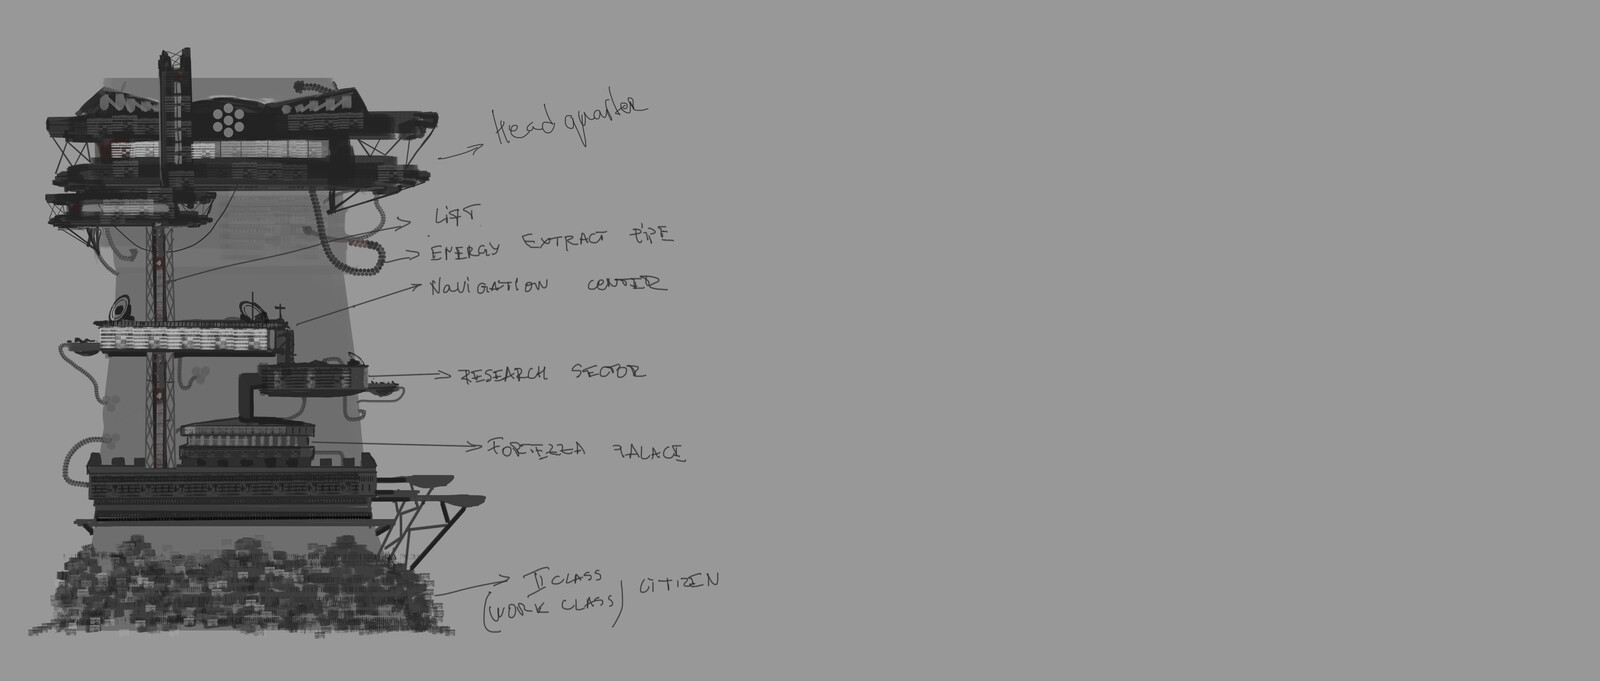 Headquarter
LIFT
ENERGY EXTRACT PIPE
NAVIGATION CENTER
RESEARCH SECTOR
FORTEZZA PALACE
II CLASS
(WORK CLASS) CITIZEN